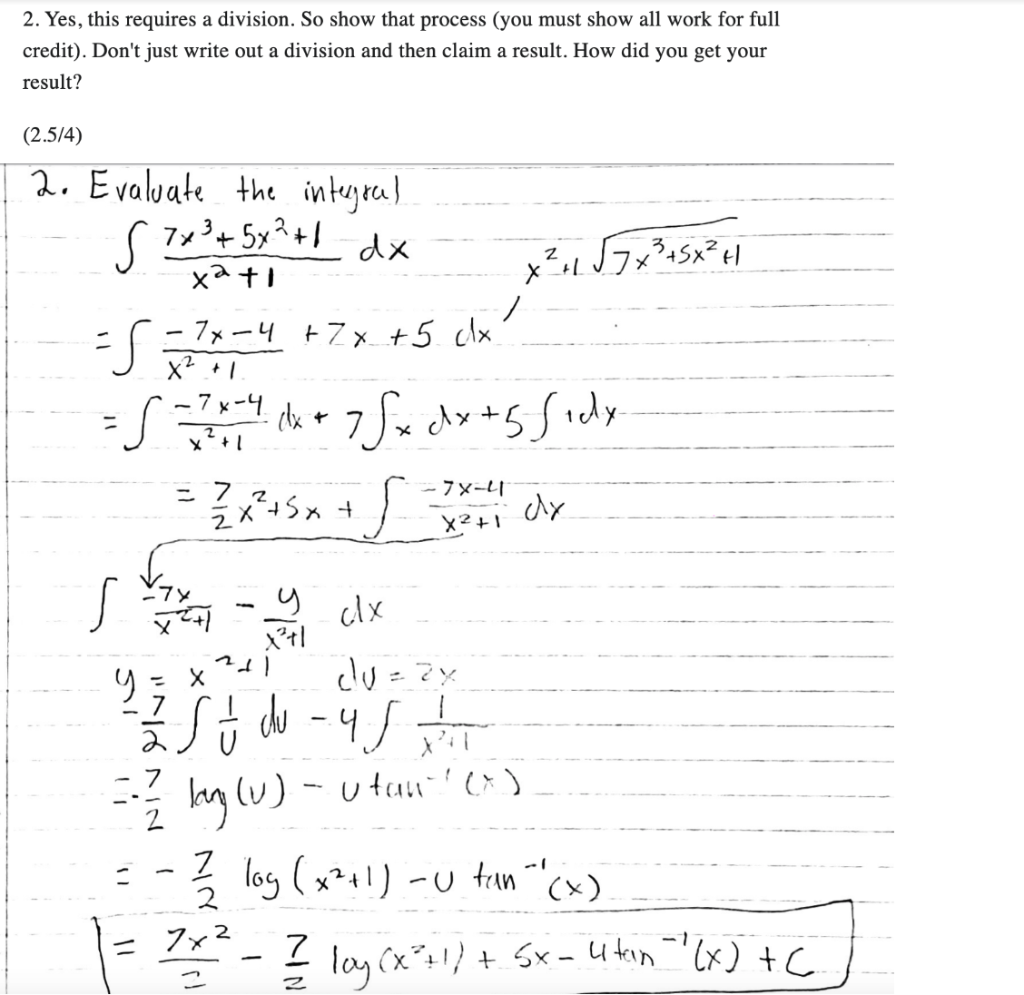 2. Yes, this requires a division. So show that process (you must show all work for full
credit). Don't just write out a division and then claim a result. How did you get your
result?
(2.5/4)
2. Evaluate the integral
∫ (7x³+5x²+1)/(x²+1) dx
x²+1 √7x³+5x²+1
= ∫ (-7x-4)/(x²+1) +7x+5 dx
= ∫ (-7x-4)/(x²+1) dx + 7∫x dx+5∫1dx
= 7/2 x²+5x + ∫ (-7x-4)/(x²+1) dx
∫ -7x/(x²+1) - 4/(x²+1) dx
u = x²+1 du = 2x
-7/2 ∫ 1/u du - 4∫ 1/(x²+1)
= -7/2 log(u) - 4tan⁻¹(x)
= - 7/2 log(x²+1) - 4 tan⁻¹(x)
= 7x²/2 - 7/2 log(x²+1) + 5x - 4tan⁻¹(x) + C